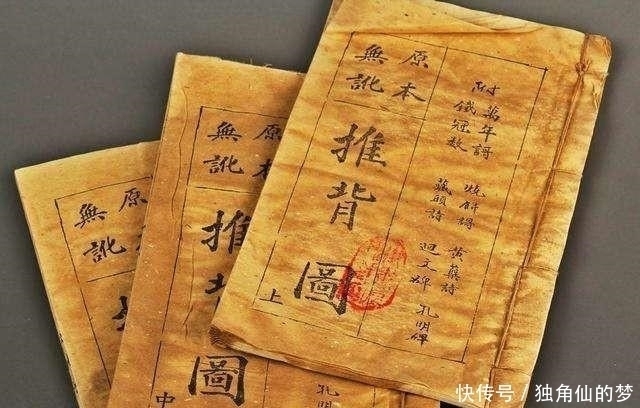 原本
無訛
推背圖
上
附
萬年謌
鐵冠數
燒餅謌
藏頭詩
黃蘗詩
迴文碑
孔明碑
原本
無訛
推背圖
中
孔明
原本
無訛
快传号/独角仙的梦